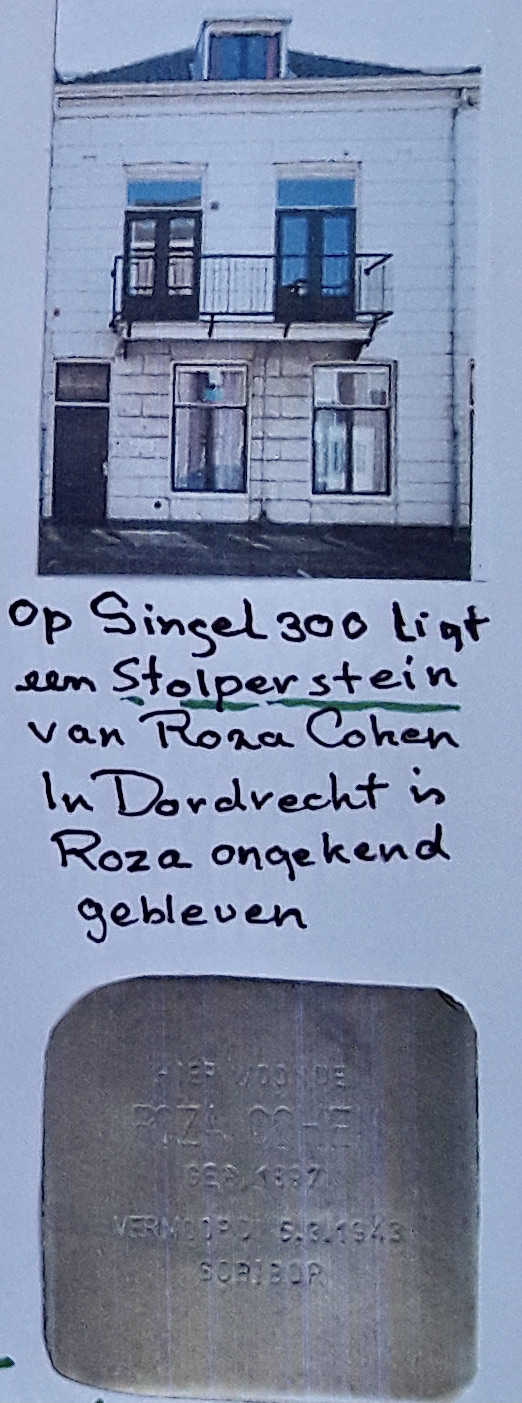 Op Singel 300 ligt
een Stolperstein
van Roza Cohen
In Dordrecht is
Roza ongekend
gebleven
HIER WOONDE
ROZA COHEN
GEB. 1897
VERMOORD 5.3.1943
SOBIBOR